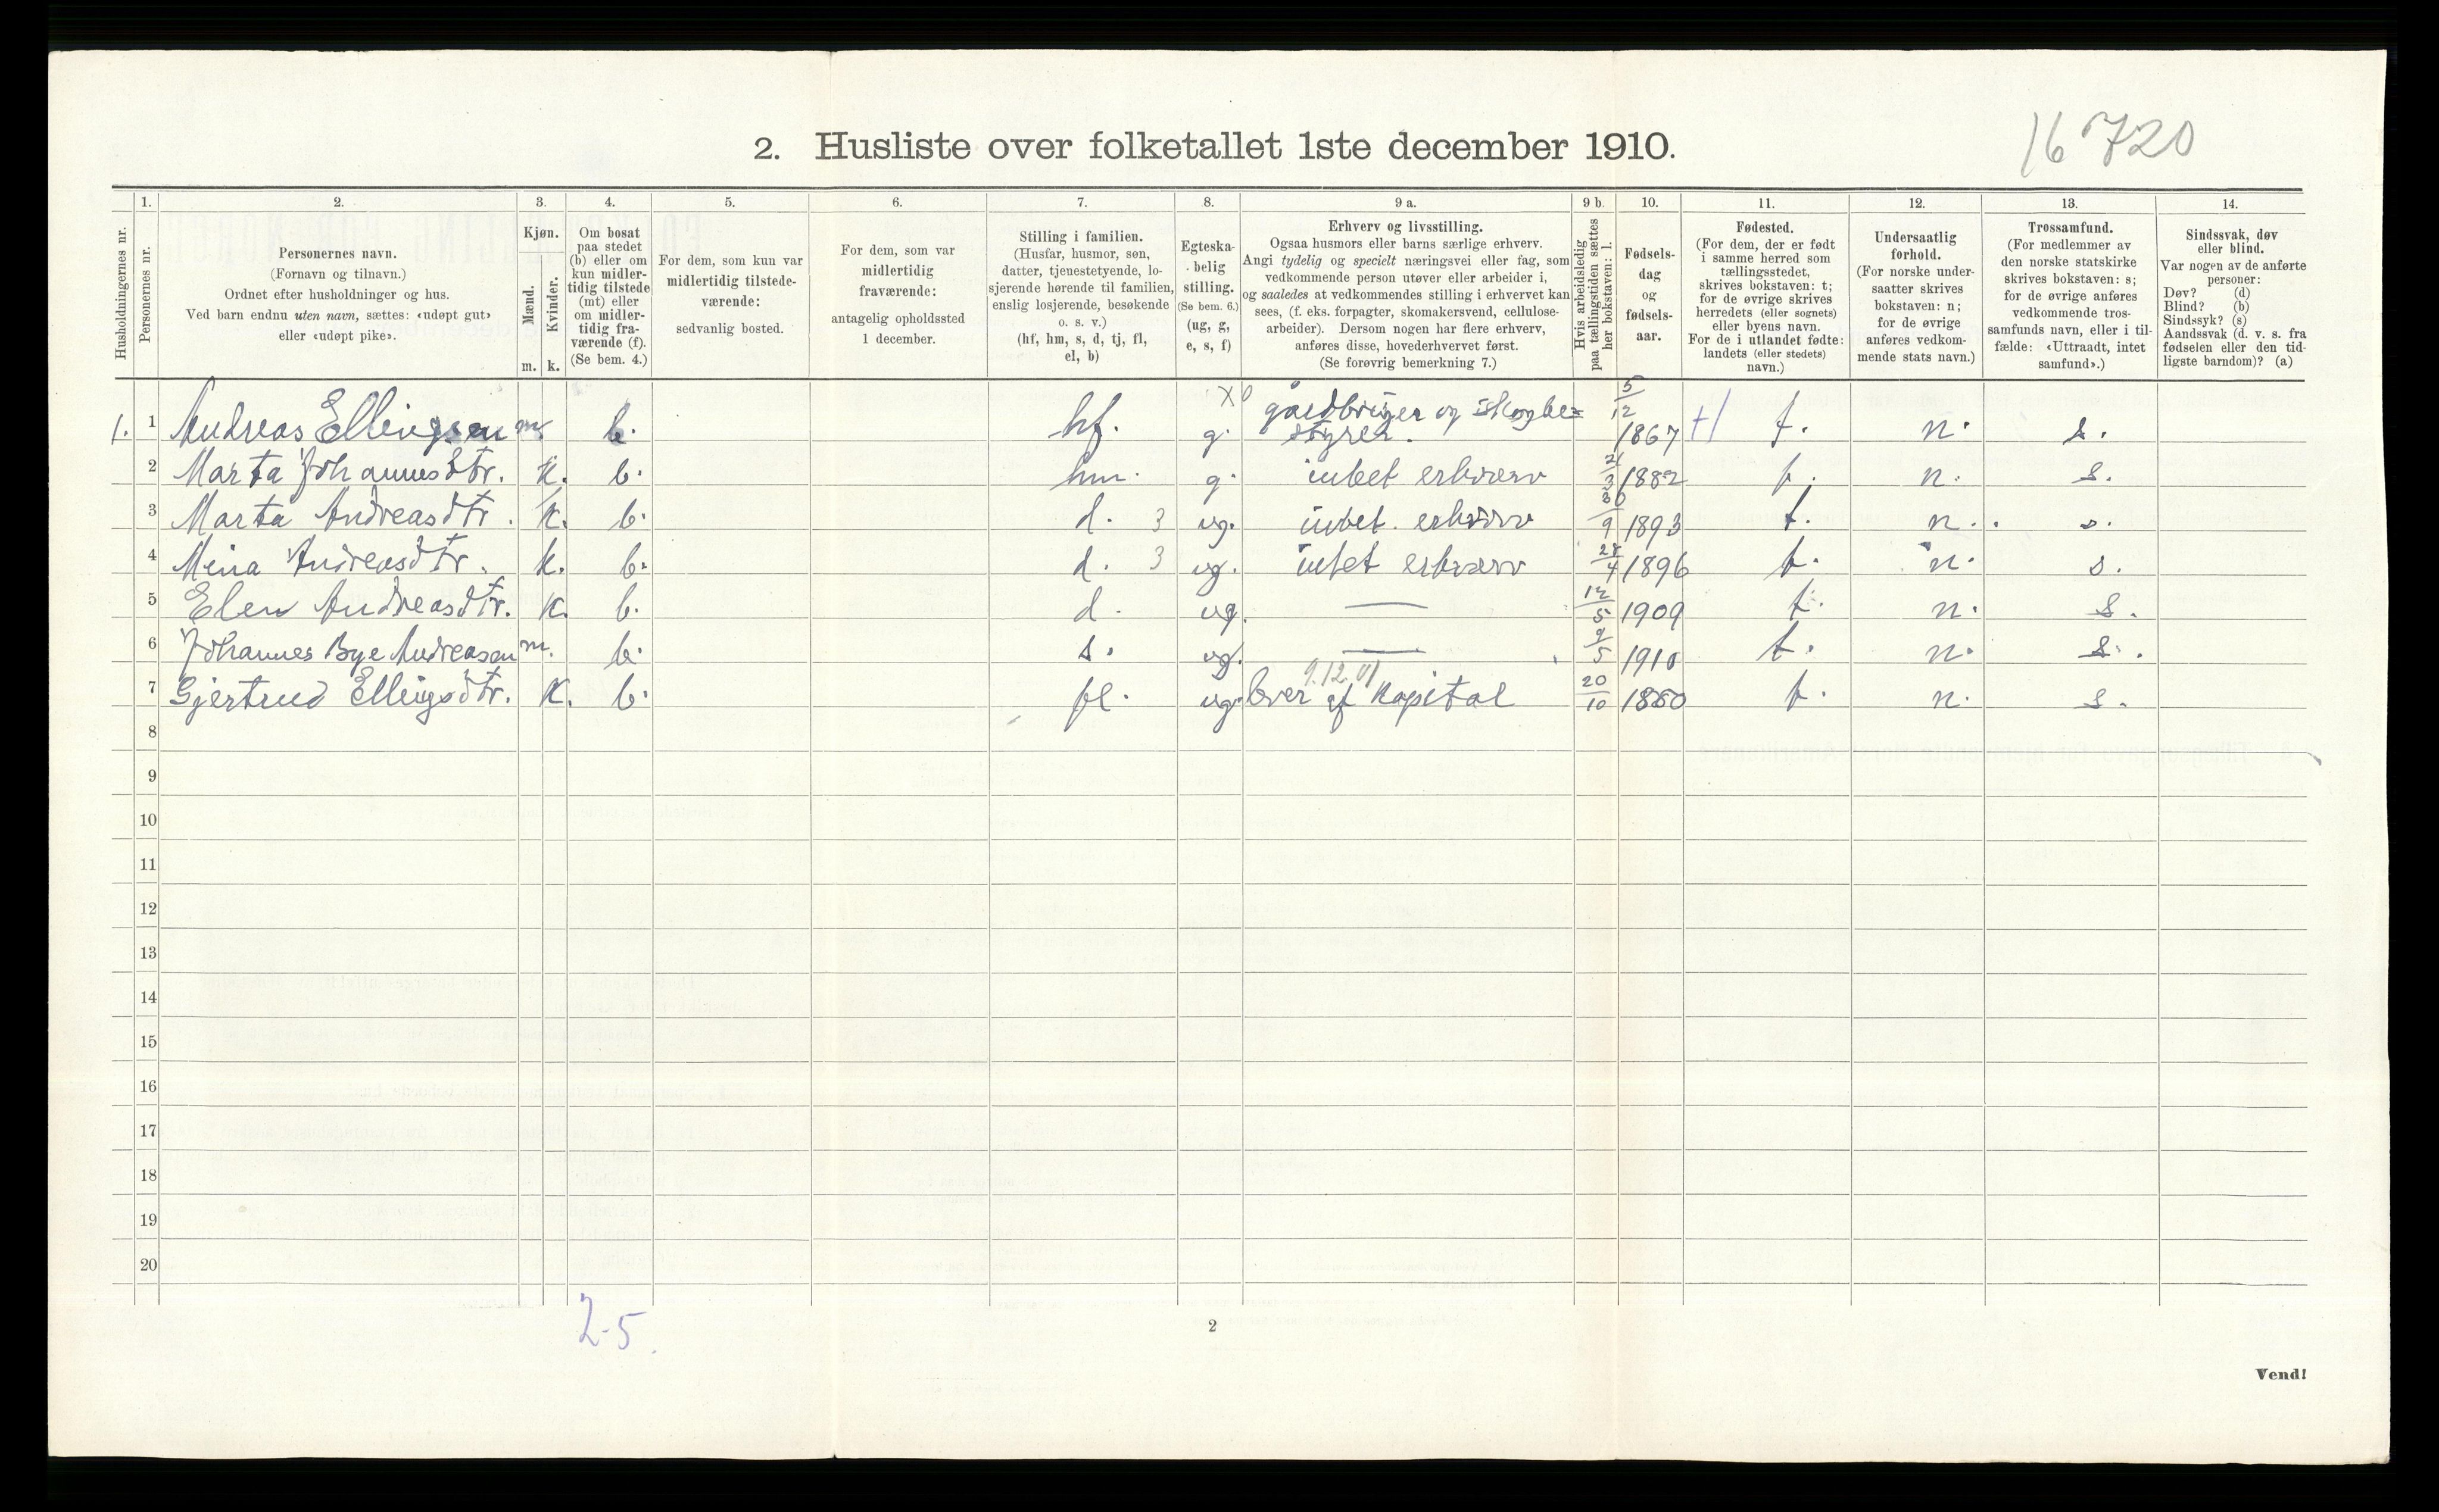 16 720
2. Husliste over folketallet 1ste december 1910.
Husholdningernes nr.
1. Personernes nr.
2. Personernes navn.
(Fornavn og tilnavn.)
Ordnet efter husholdninger og hus.
Ved barn endnu uten navn, sættes: «udøpt gut»
eller «udøpt pike».
3. Kjøn.
Mænd. m.
Kvinder. k.
4. Om bosat
paa stedet
(b) eller om
kun midler-
tidig tilstede
(mt) eller
om midler-
tidig fra-
værende (f).
(Se bem. 4.)
5. For dem, som kun var
midlertidig tilstede-
værende:
sedvanlig bosted.
6. For dem, som var
midlertidig
fraværende:
antagelig opholdssted
1 december.
7. Stilling i familien.
(Husfar, husmor, søn,
datter, tjenestetyende, lo-
sjerende hørende til familien,
enslig losjerende, besøkende
o. s. v.)
(hf, hm, s, d, tj, fl,
el, b)
8. Egteska-
belig
stilling.
(Se bem. 6.)
(ug, g,
e, s, f)
9 a. Erhverv og livsstilling.
Ogsaa husmors eller barns særlige erhverv.
Angi tydelig og specielt næringsvei eller fag, som
vedkommende person utøver eller arbeider i,
og saaledes at vedkommendes stilling i erhvervet kan
sees, (f. eks. forpagter, skomakersvend, cellulose-
arbeider). Dersom nogen har flere erhverv,
anføres disse, hovederhvervet først.
(Se forøvrig bemerkning 7.)
9 b. Hvis arbeidsledig
paa tællingstiden sættes
her bokstaven: l.
10. Fødsels-
dag
og
fødsels-
aar.
11. Fødested.
(For dem, der er født
i samme herred som
tællingsstedet,
skrives bokstaven: t;
for de øvrige skrives
herredets (eller sognets)
eller byens navn.
For de i utlandet fødte:
landets (eller stedets)
navn.)
12. Undersaatlig
forhold.
(For norske under-
saatter skrives
bokstaven: n;
for de øvrige
anføres vedkom-
mende stats navn.)
13. Trossamfund.
(For medlemmer av
den norske statskirke
skrives bokstaven: s;
for de øvrige anføres
vedkommende tros-
samfunds navn, eller i til-
fælde: «Uttraadt, intet
samfund».)
14. Sindssvak, døv
eller blind.
Var nogen av de anførte
personer:
Døv? (d)
Blind? (b)
Sindssyk? (s)
Aandssvak (d. v. s. fra
fødselen eller den tid-
ligste barndom)? (a)
1. 1 Andreas Ellingsen m. b. hf. g. X0 gaardbruger og skogbe=
styrer. 5/12 1867 t. n. s.
2 Marta Johannesdtr. k. b. hm. g. intet erhværv 21/3 1882 t. n. s.
3 Marta Andreasdtr. k. b. d. 3 ug. intet erhværv 30/9 1893 t. n. s.
4 Mina Andreasdtr. k. b. d. 3 ug. intet erhværv 28/4 1896 t. n. s.
5 Elen Andreasdtr. k. b. d. ug. — 12/5 1909 t. n. s.
6 Johannes Bye Andreasen m. b. s. ug. — 9/5 1910 t. n. s.
7 Gjertrud Ellingsdtr. k. b. fl. ug. lever af Kapital 20/10 1850 t. n. s.
8
9
10
11
12
13
14
15
16
17
18
19
20
2-5.
2
Vend!